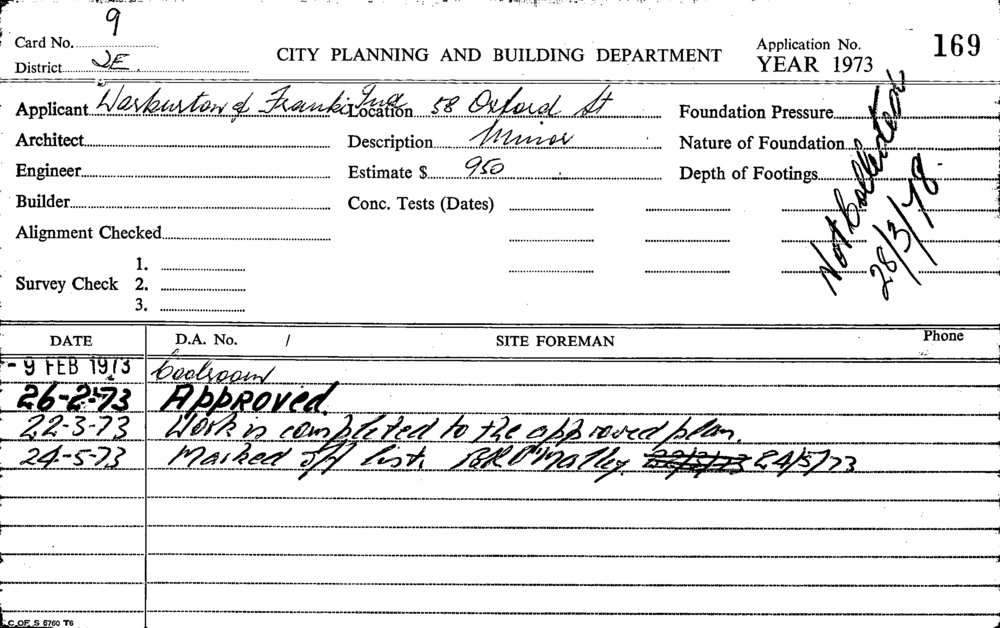 Card No. 9
District 2E.
CITY PLANNING AND BUILDING DEPARTMENT
Application No. 169
YEAR 1973
Applicant Warburton & Franki Ind Location 58 Oxford St Foundation Pressure
Architect Description Minor Nature of Foundation
Engineer Estimate $ 950 Depth of Footings
Builder Conc. Tests (Dates)
Alignment Checked
Not Collected
28/3/78
Survey Check 1.
2.
3.
DATE D.A. No. / SITE FOREMAN Phone
- 9 FEB 1973 Coolroom
26-2-73 Approved.
22-3-73 Work is completed to the approved plan.
24-5-73 Marked off list. O'Malley. 24/5/73
C. OF. S 5760 T6